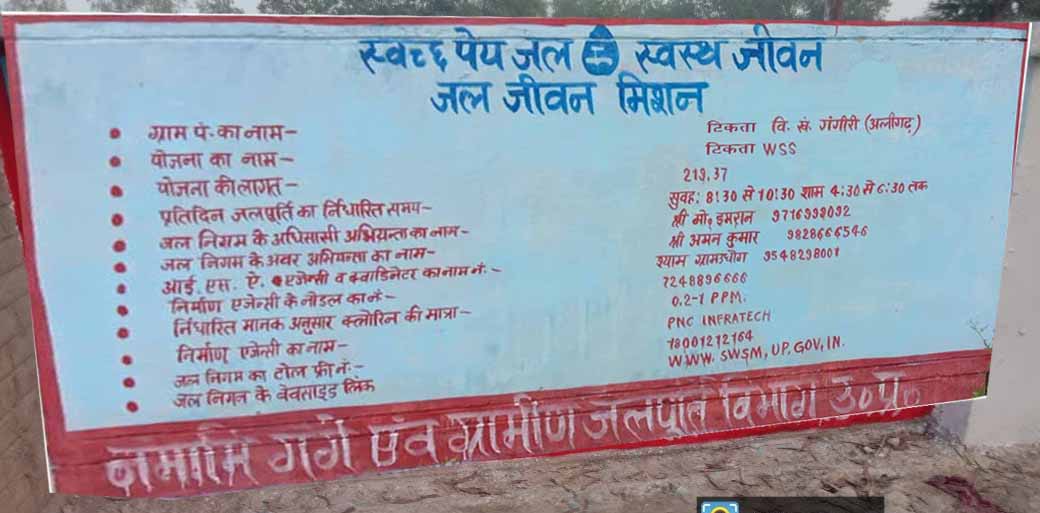 स्वच्छ पेय जल स्वस्थ जीवन
जल जीवन मिशन
ग्राम पं. का नाम- टिकता वि. खं. गंगीरी (अलीगढ़)
योजना का नाम- टिकता WSS
योजना की लागत- 219.37
प्रतिदिन जलपूर्ति का र्निधारित समय- सुवह: 8:30 से 10:30 शाम 4:30 से 6:30 तक
जल निगम के अधिसासी अभियन्ता का नाम- श्री मो. इमरान 9716998092
जल निगम के अवर अभियन्ता का नाम- श्री अमन कुमार 9828666546
आई. एस. ऐ. एजेन्सी व क्वाडिनेटर का नाम नं.- श्याम ग्रामउधोग 9548298001
निर्माण एजेन्सी के नोडल का नं- 7248896666
र्निधारित मानक अनुसार क्लोरिन की मात्रा- 0.2-1 PPM.
निर्माण एजेन्सी का नाम- PNC INFRATECH
जल निगम का टोल फ्री नं:- 18001212164
जल निगम के वेवसाइड लिंक WWW. SWSM, UP, GOV, IN.
नमामि गंगे एंव ग्रामीण जलपूर्ति विभाग उ०प्र०